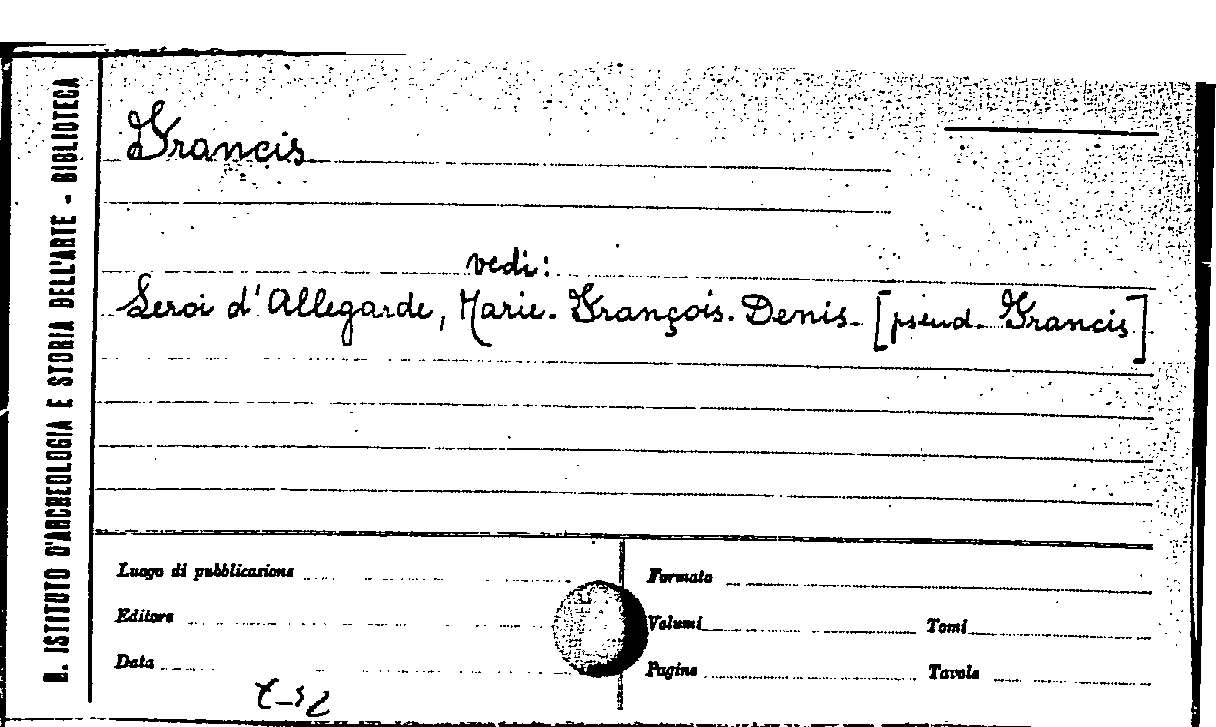 R. ISTITUTO D'ARCHEOLOGIA E STORIA DELL'ARTE - BIBLIOTECA
Francis
vedi:
Leroi d'Allegarde, Marie-François-Denis- [pseud. Francis]
Luogo di pubblicazione
Formato
Editore
Volumi Tomi
Data
Pagine Tavole